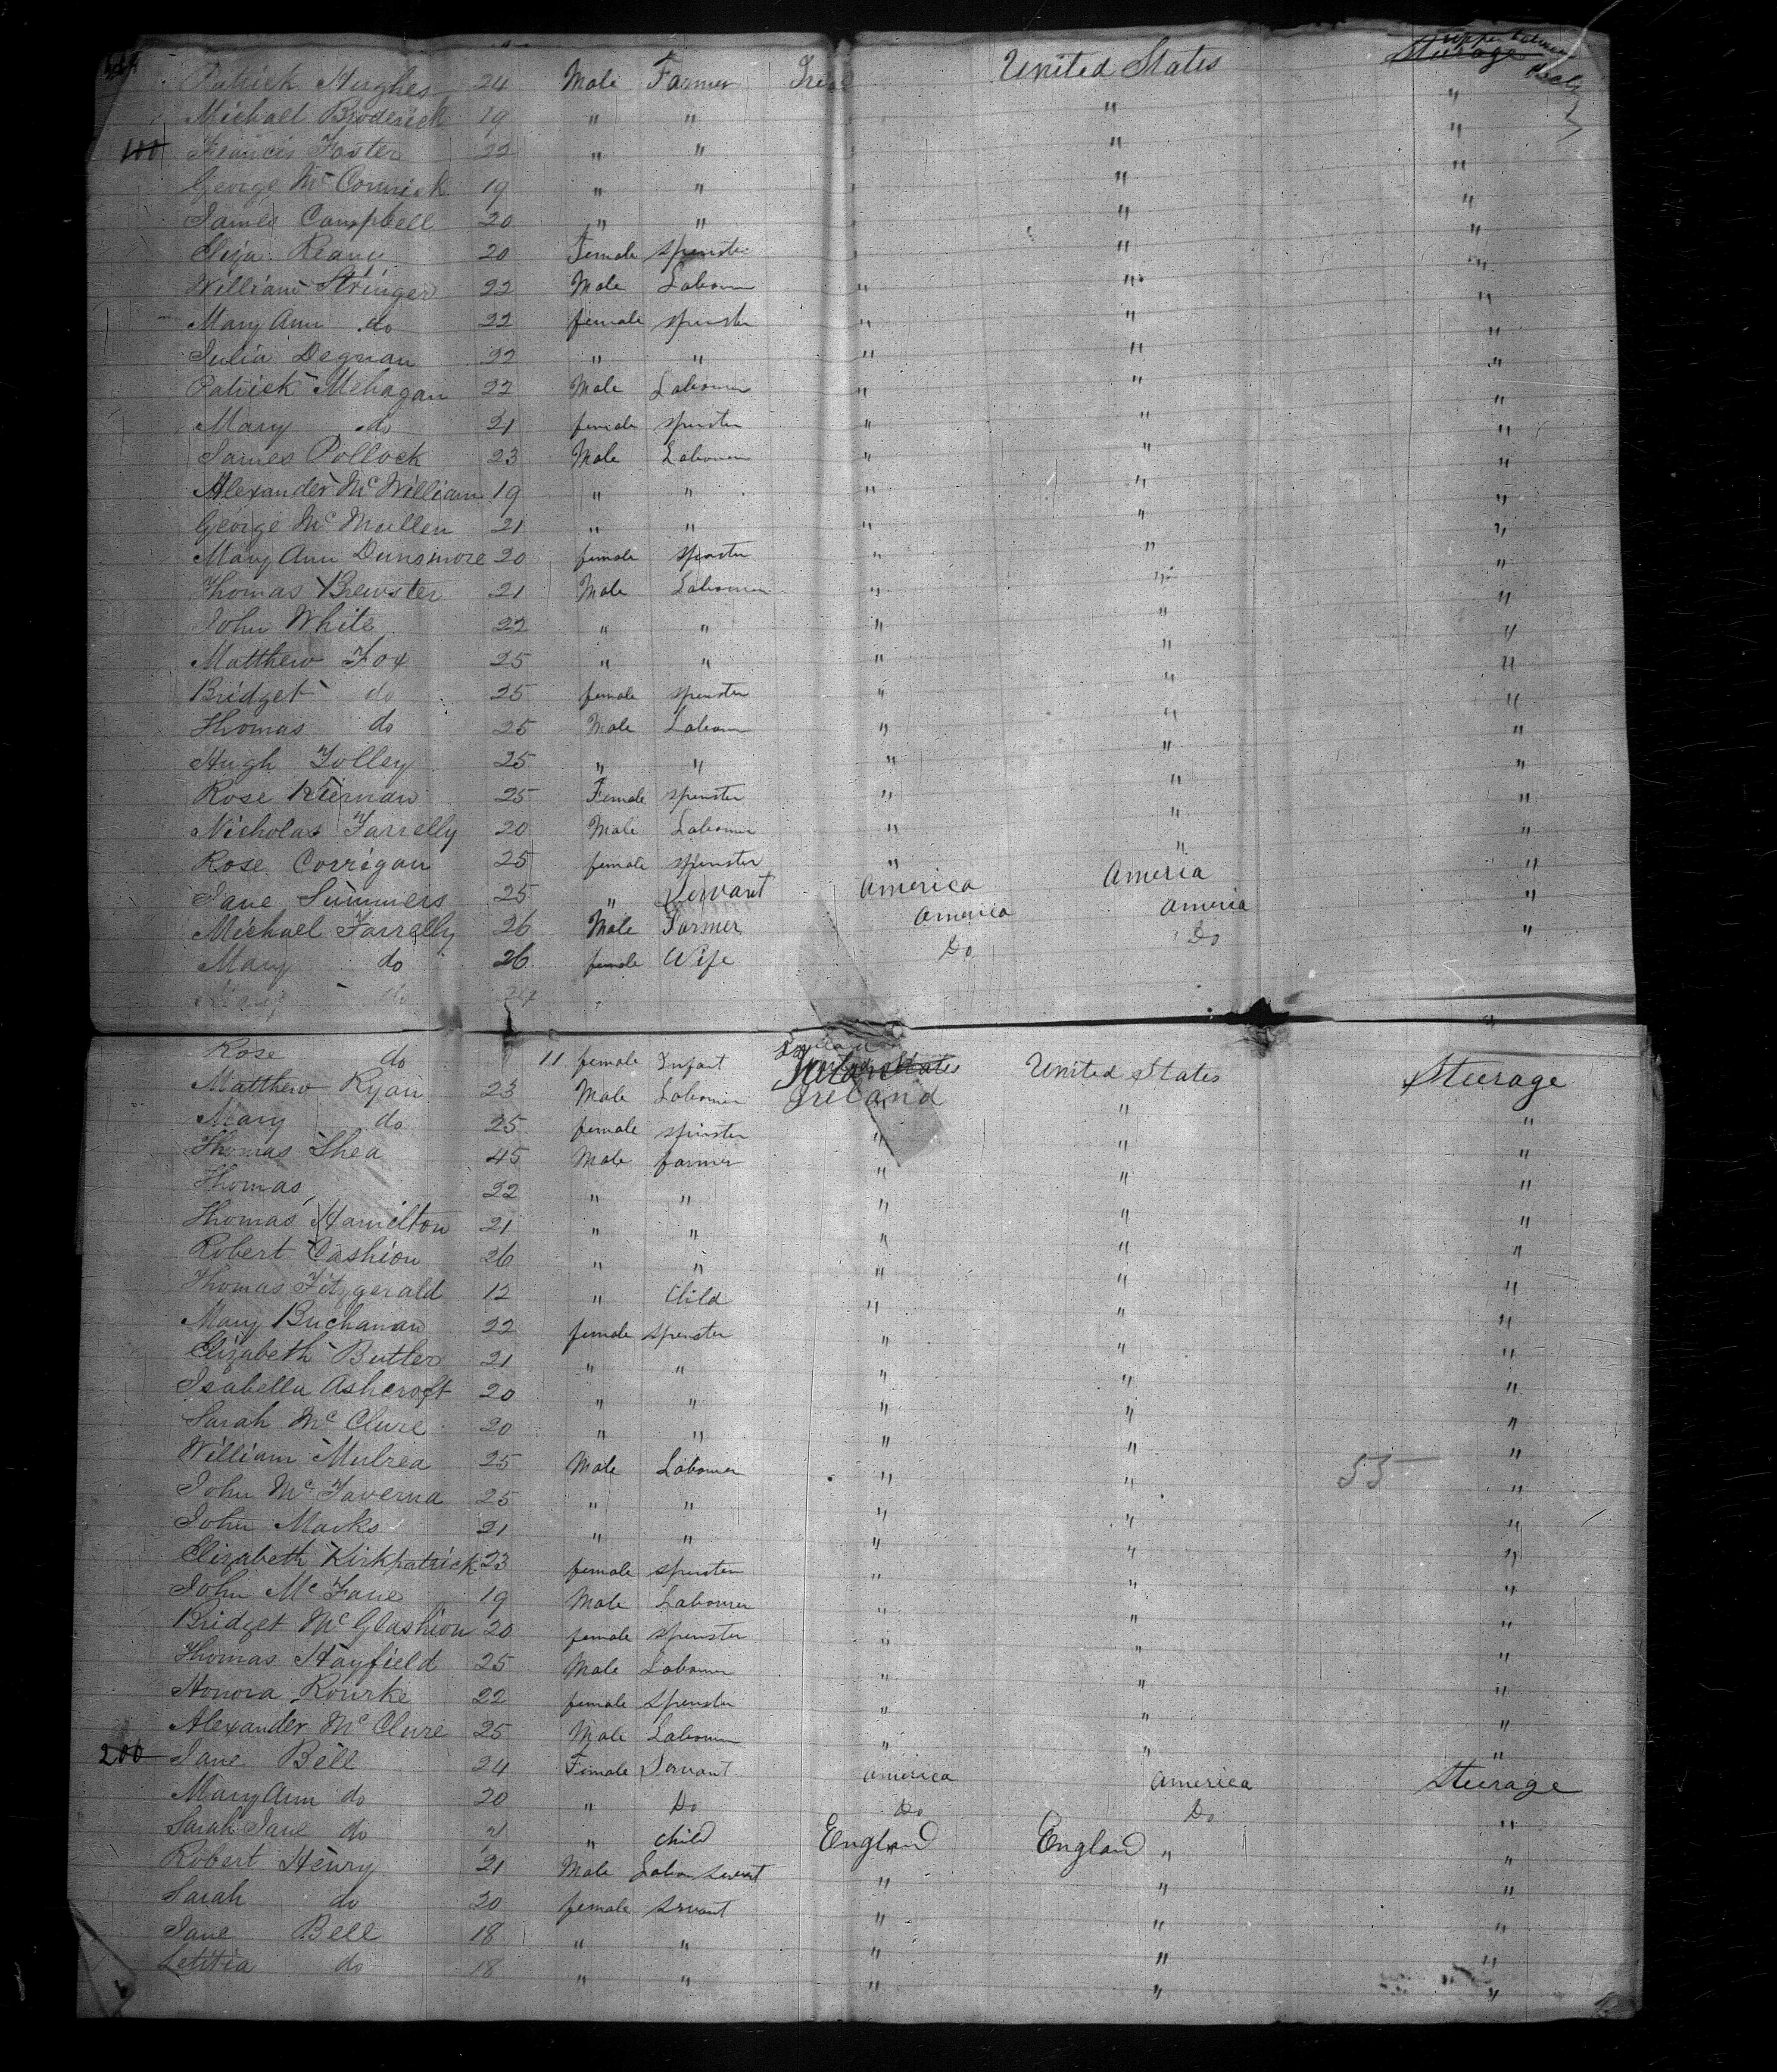 Patrick Hughes 24 Male Farmer United States Steerage
Michael Broderick 19 " " " "
100 Francis Foster 22 " " " "
George McCormick 19 " " " "
James Campbell 20 " " " "
Eliza Reany 20 Female Spinster " "
William Stringer 22 Male Labourer " " "
Mary Ann do 22 female spinster " " "
Julia Degnan 22 " " " " "
Patrick Mehagan 22 Male Labourer " " "
Mary do 21 female spinster " " "
James Pollock 23 Male Labourer " " "
Alexander McWilliam 19 " " " " "
George McMullen 21 " " " " "
Mary Ann Dunsmore 20 female spinster " " "
Thomas Brewster 21 Male Labourer " " "
John White 22 " " " " "
Matthew Fox 25 " " " " "
Bridget do 25 female spinster " " "
Thomas do 25 Male Labourer " " "
Hugh Tolley 25 " " " " "
Rose Kiernan 25 Female spinster " " "
Nicholas Farrelly 20 Male Labourer " " "
Rose Corrigan 25 female spinster " " "
Jane Summers 25 " Servant America America "
Michael Farrelly 26 Male Farmer America America "
Mary do 26 female Wife Do Do "
Mary do 24
Rose do 11 female Infant United States Steerage
Matthew Ryan 23 Male Labourer Ireland " "
Mary do 25 female spinster " " "
Thomas Shea 45 Male farmer " " "
Thomas 22 " " " " "
Thomas Hamilton 21 " " " " "
Robert Cashion 26 " " " " "
Thomas Fitzgerald 12 " Child " " "
Mary Buchanan 22 female spinster " " "
Elizabeth Butler 21 " " " " "
Isabella Ashcroft 20 " " " " "
Sarah McClure 20 " " " " "
William Mulrea 25 Male Labourer " " 55 "
John McTaverna 25 " " " " "
John Marks 21 " " " " "
Elizabeth Kirkpatrick 23 female spinster " " "
John McFane 19 Male Labourer " " "
Bridget McGlashion 20 female spinster " " "
Thomas Hayfield 25 Male Labourer " " "
Honora Rourke 22 female spinster " " "
Alexander McClure 25 Male Labourer " " "
200 Jane Bell 24 Female Servant America America Steerage
Mary Ann do 20 " Do Do Do "
Sarah Jane do " child England England " "
Robert Henry 21 Male Labour Servant " " "
Sarah do 20 female Servant " " "
Jane Bell 18 " " " " "
Letitia do 18 " " " " "